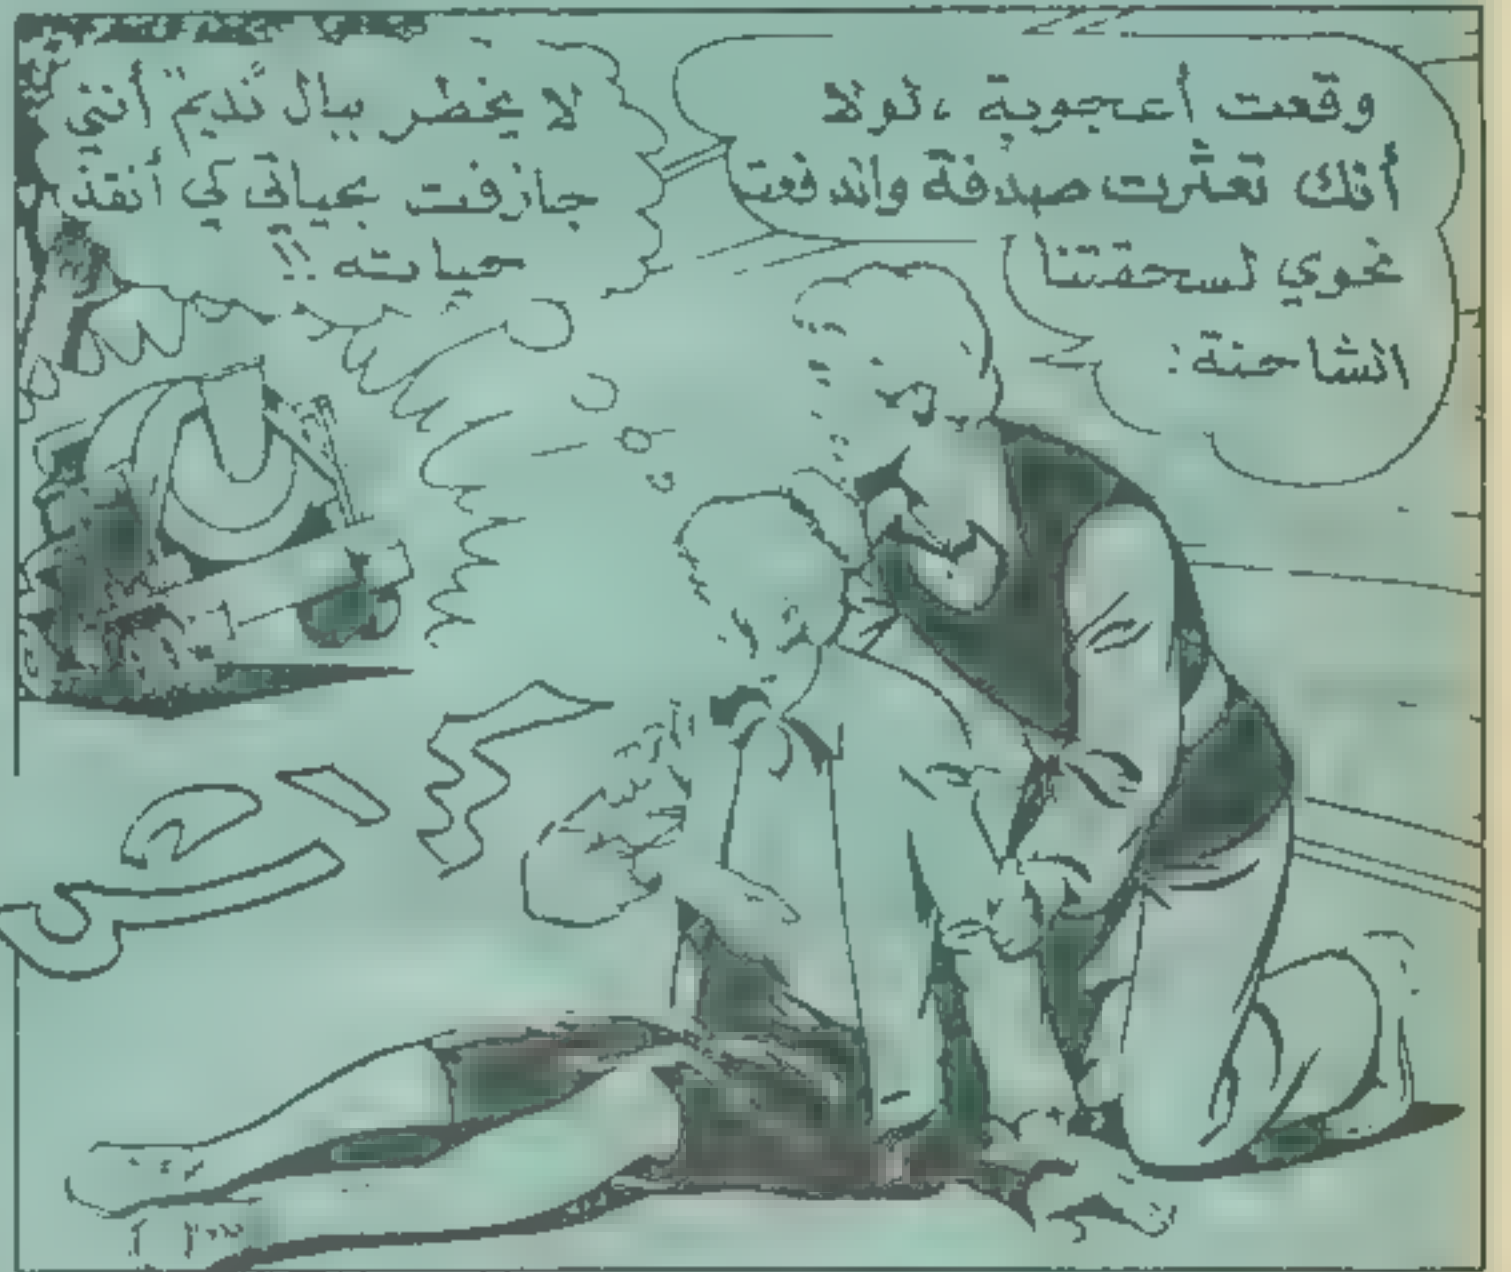 وقعت أعجوبة ، لولا
أنك تعثرت صدفة واندفعت
نحوي لسحقتنا
الشاحنة :
لا يخطر ببال نديم أنني
جازفت بحياتي كي أنقذ
حياته !!